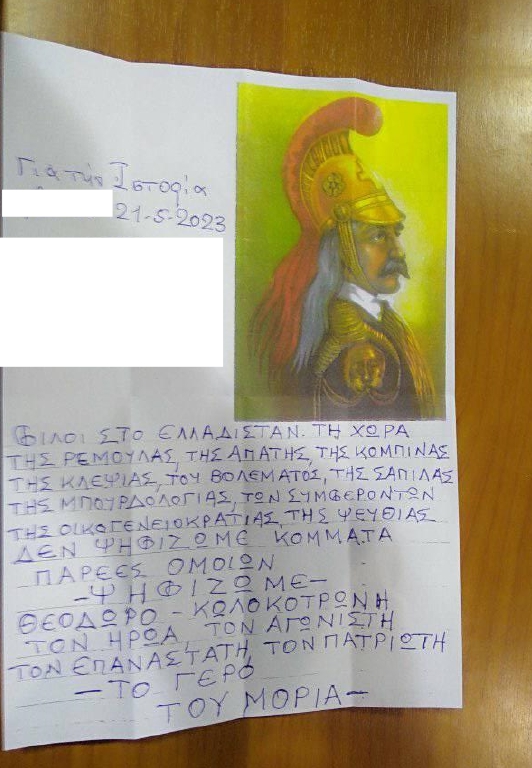 Για την Ιστορία
21-5-2023
ΦΙΛΟΙ ΣΤΟ ΕΛΛΑΔΙΣΤΑΝ. ΤΗ ΧΩΡΑ
ΤΗΣ ΡΕΜΟΥΛΑΣ, ΤΗΣ ΑΠΑΤΗΣ, ΤΗΣ ΚΟΜΠΙΝΑΣ
ΤΗΣ ΚΛΕΨΙΑΣ, ΤΟΥ ΒΟΛΕΜΑΤΟΣ, ΤΗΣ ΣΑΠΙΛΑΣ
ΤΗΣ ΜΠΟΥΡΔΟΛΟΓΙΑΣ, ΤΩΝ ΣΥΜΦΕΡΟΝΤΩΝ
ΤΗΣ ΟΙΚΟΓΕΝΕΙΟΚΡΑΤΙΑΣ, ΤΗΣ ΨΕΥΘΙΑΣ
ΔΕΝ ΨΗΦΙΖΩΜΕ ΚΟΜΜΑΤΑ
ΠΑΡΕΕΣ ΟΜΟΙΩΝ
-ΨΗΦΙΖΩΜΕ-
ΘΕΟΔΩΡΟ - ΚΟΛΟΚΟΤΡΩΝΗ
ΤΟΝ ΗΡΩΑ, ΤΟΝ ΑΓΩΝΙΣΤΗ
ΤΟΝ ΕΠΑΝΑΣΤΑΤΗ, ΤΟΝ ΠΑΤΡΙΩΤΗ
- ΤΟ ΓΕΡΟ
ΤΟΥ ΜΟΡΙΑ -